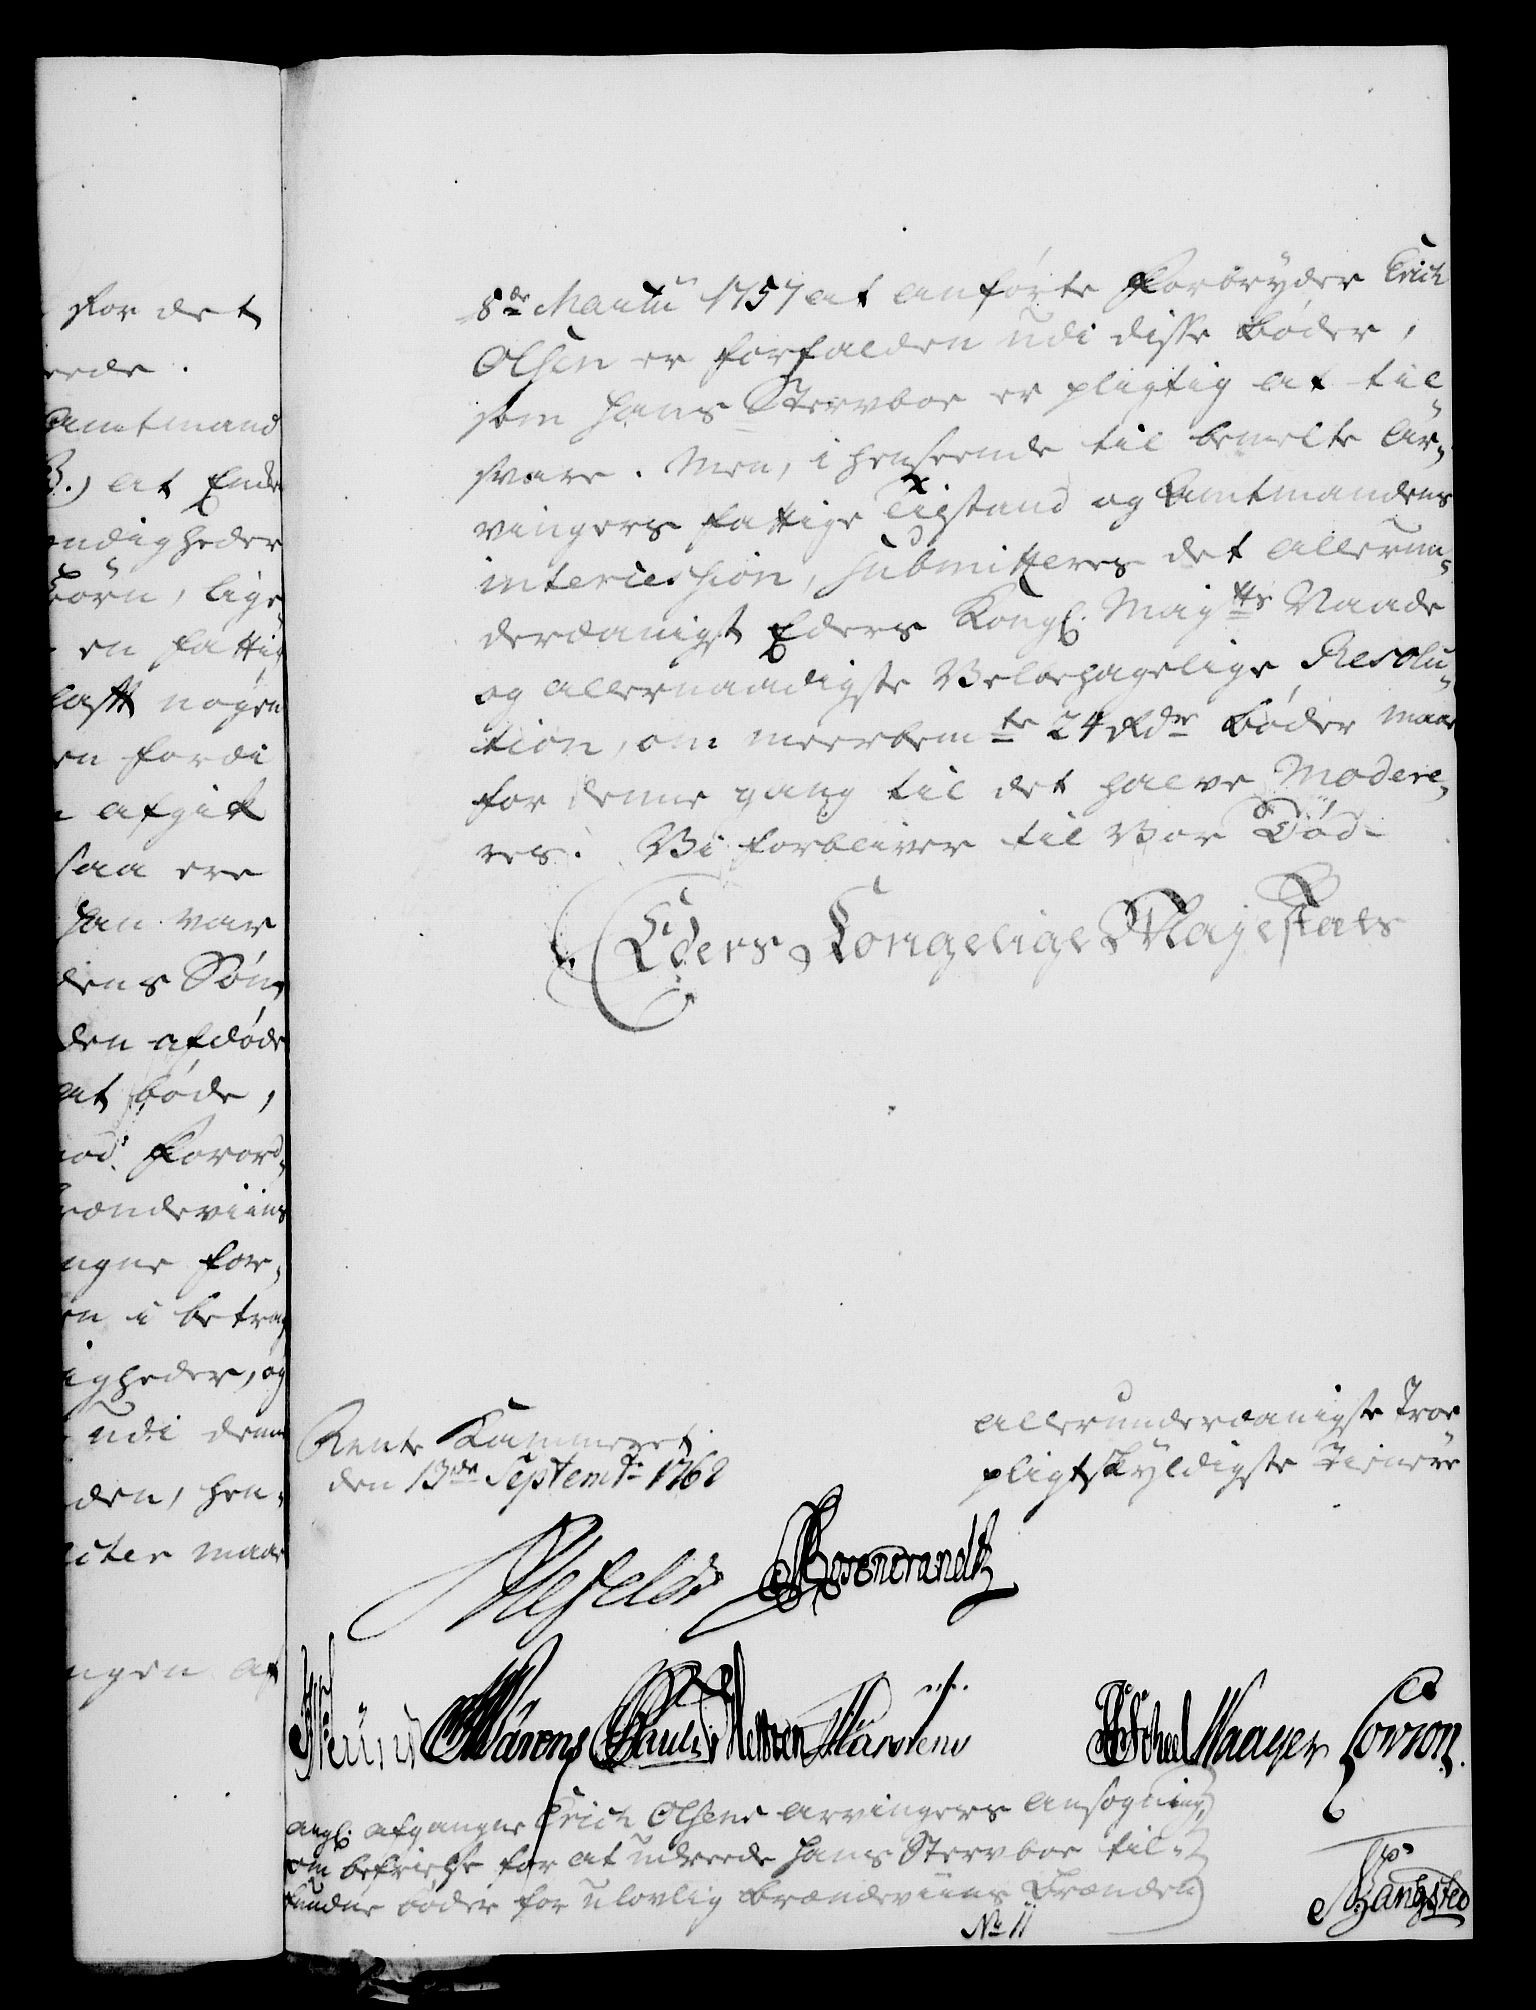 for det
rede.
Amtmand
B.) at Ende
endigheder
Børn, lige
en fattig
hafft nogen
en fordi
afgik
saa ere
han var
dens Søn,
den afdøde
at bøde,
mod Forord„
brændeviins
ngne for„
en i betrag
igheder, og
udi denne
den, hen„
citer maae
ngen af
8de Martii 1757 at anførte Forbryder Erich
Olsen er forfalden udi disse Bøder,
som hans Stervboe er pligtig at til„
svare. Men, i henseende til bemelte Ar„
vingers fattige Tilstand og Amtmandens
intercession, submitteres det allerun„
derdanigst Eders Kongl. Mayts Naade
og allernaadigste Velbehagelige Resolu„
tion, om meerbemte 24 Rdr Bøder maae
for denne gang til det halve Modere„
res. Vi forbliver til Vor Død
Eders Kongelige Majestæts
Rente Kammeret
den 13de Septembr 1762
allerunderdanigste Troe
pligtskyldigste Tienere
Ahlefeldt Rosencrandtz
Wärens Marstens Scheel Waager
angl. afgangne Erich Olsens arvingers ansøgning
om befrielse for at udreede hans Stervboe til„
fundne bøder for ulovlig Brændeviins Brænden
No 11
Bangsted